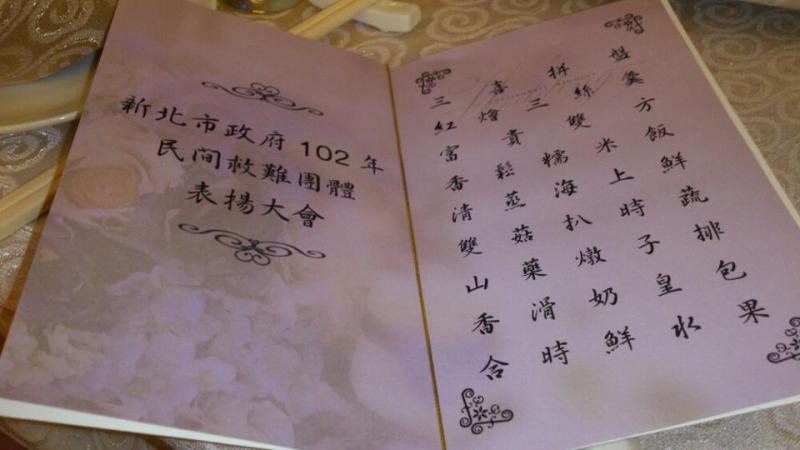 新北市政府 102 年
民間救難團體
表揚大會
三喜拼盤
紅燴三絲羹
富貴雙方
香鬆糯米飯
清蒸海上鮮
雙菇扒時蔬
山藥燉子排
香滑奶皇包
合時鮮水果